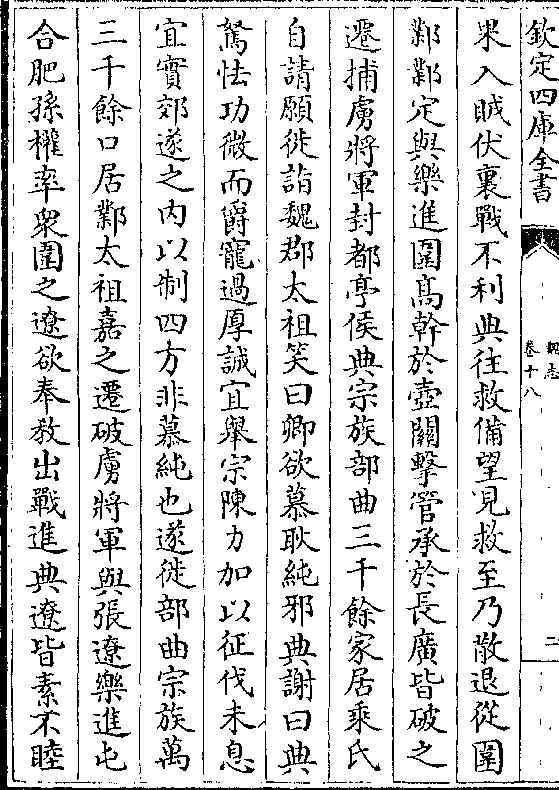 欽定四庫全書
魏志
卷十八
二
果入賊伏裏戰不利典往救備望見救至乃散退從圍
鄴鄴定與樂進圍髙幹於壺闗擊管承於長廣皆破之
遷捕虜將軍封都亭侯典宗族部曲三千餘家居乘氏
自請願徙詣魏郡太祖笑曰卿欲慕耿純邪典謝曰典
駑怯功微而爵寵過厚誠宜舉宗陳力加以征伐未息
宜實郊遂之内以制四方非慕純也遂徙部曲宗族萬
三千餘口居鄴太祖嘉之遷破虜將軍與張遼樂進屯
合肥孫權率衆圍之遼欲奉教出戰進典遼皆素不睦